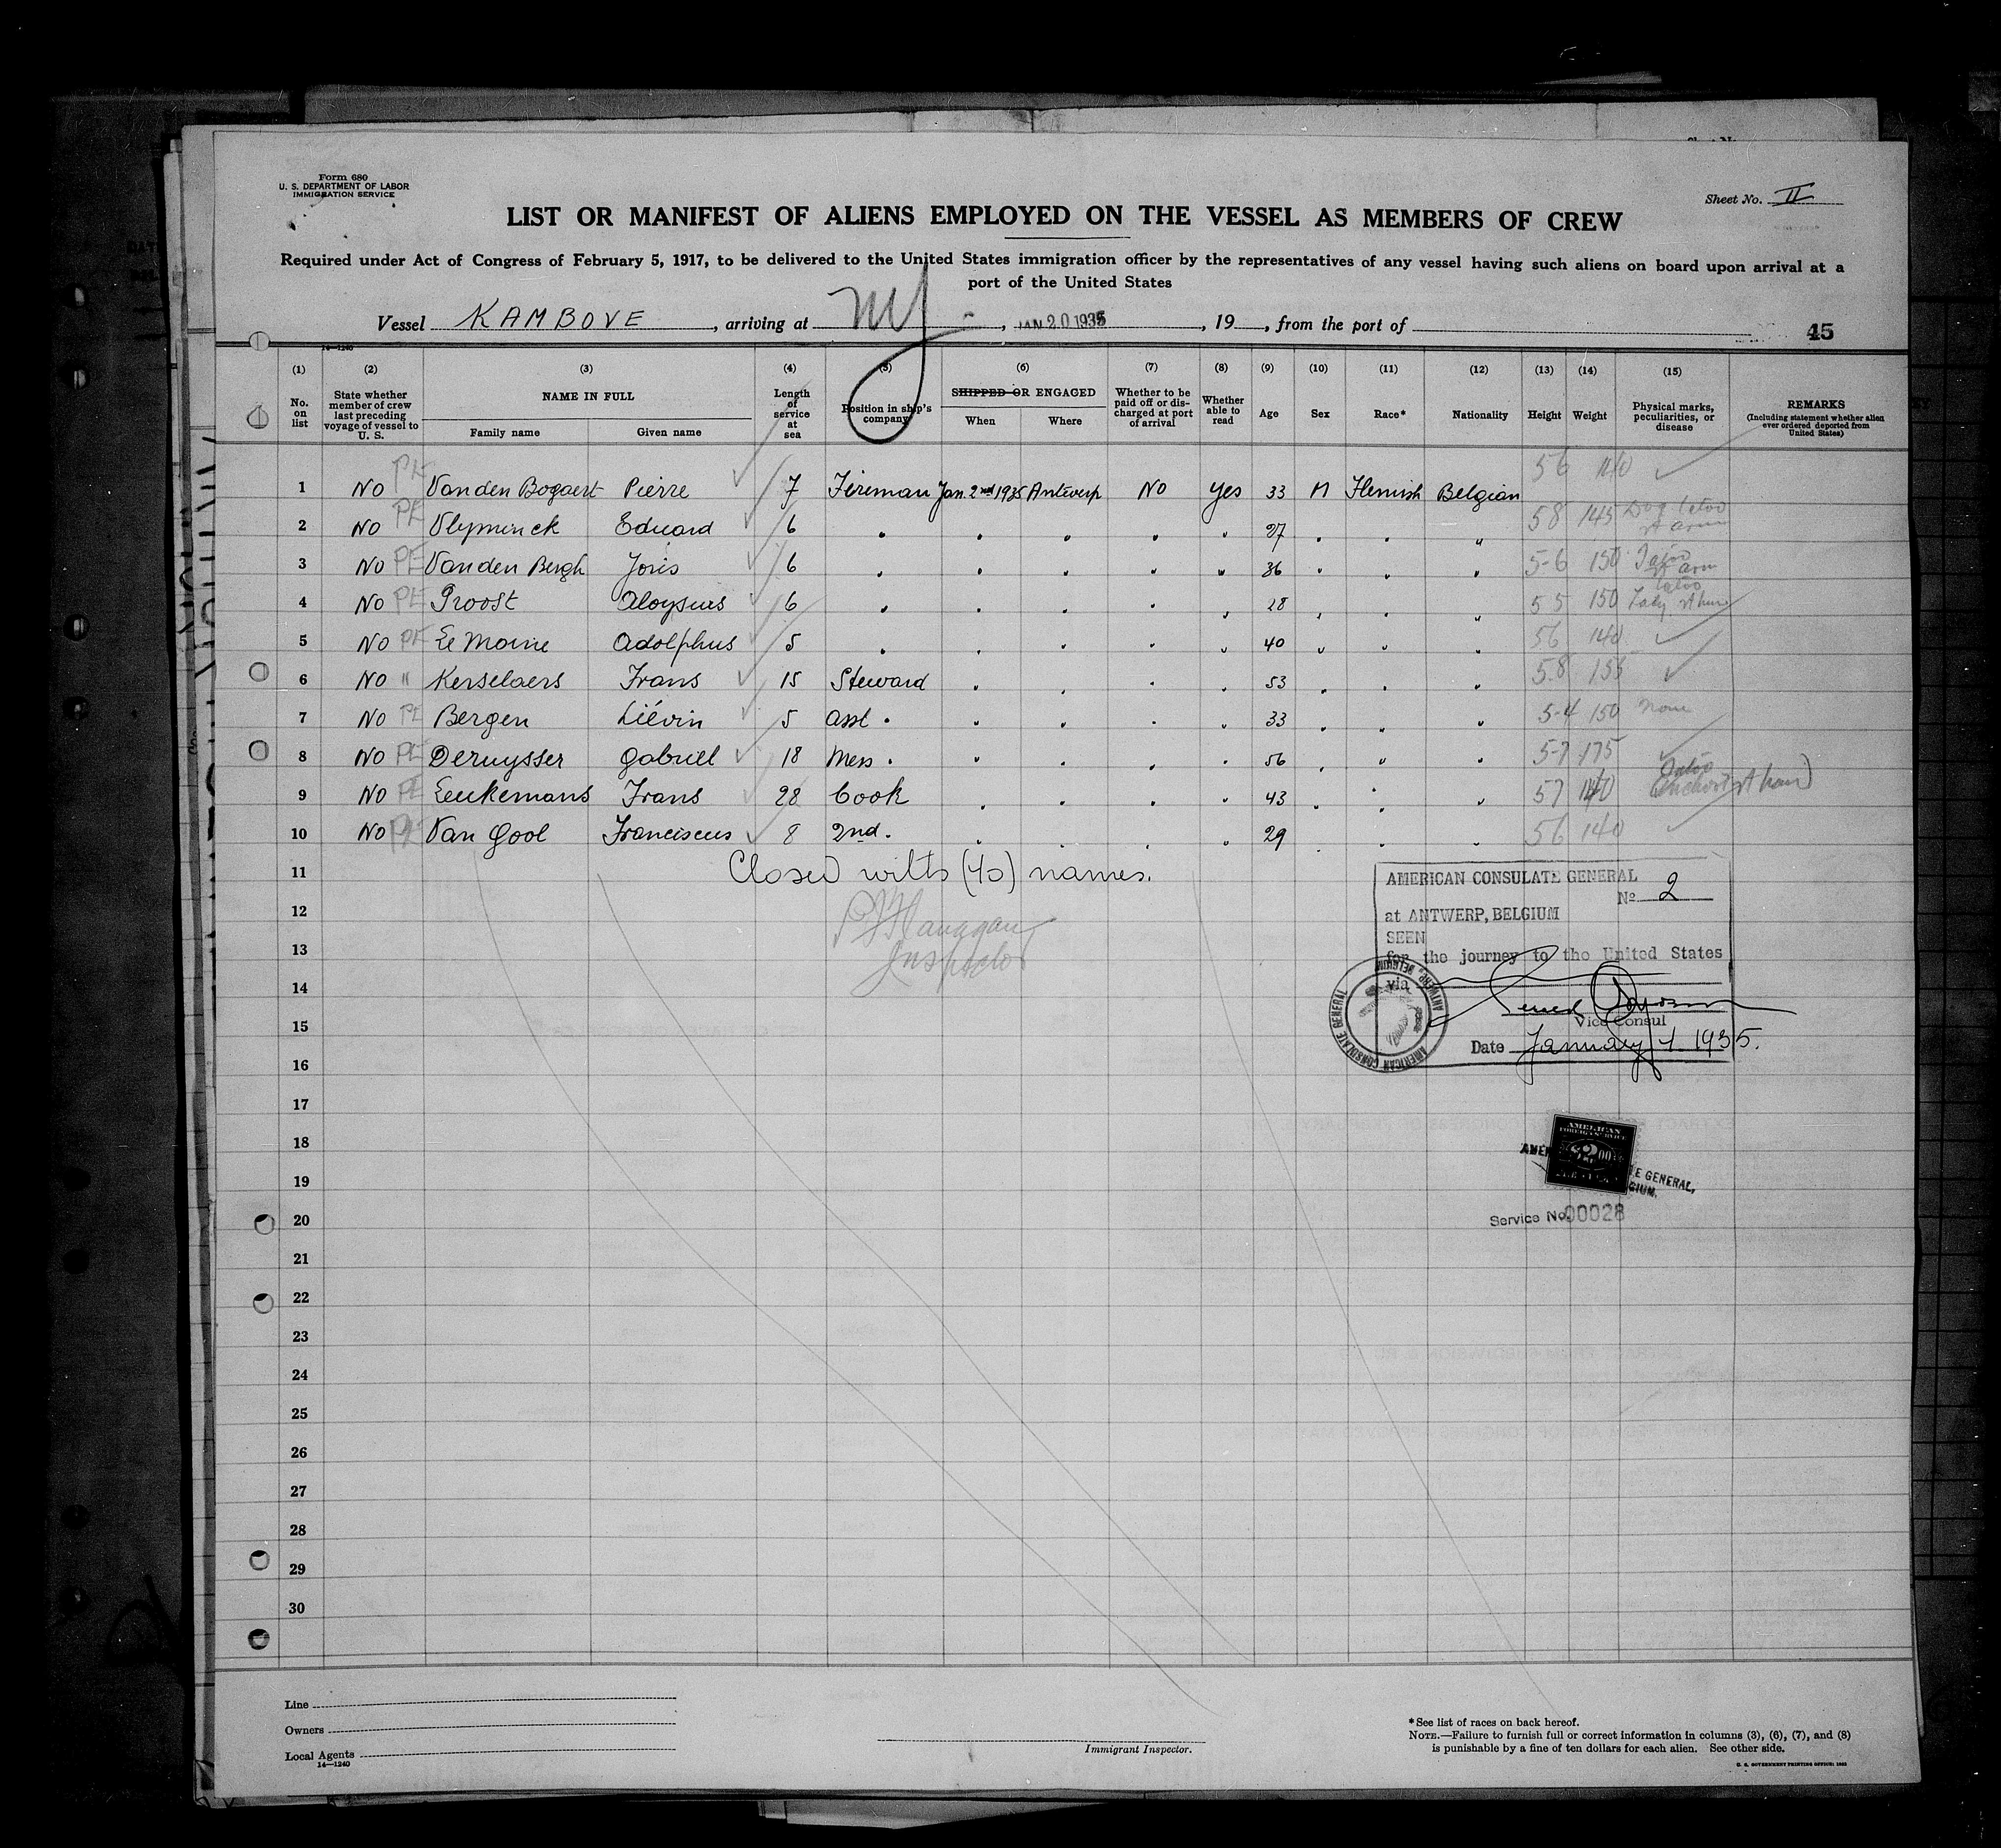 Form 680
U. S. DEPARTMENT OF LABOR
IMMIGRATION SERVICE
Sheet No. II
LIST OR MANIFEST OF ALIENS EMPLOYED ON THE VESSEL AS MEMBERS OF CREW
Required under Act of Congress of February 5, 1917, to be delivered to the United States immigration officer by the representatives of any vessel having such aliens on board upon arrival at a
port of the United States
Vessel KAMBOVE, arriving at NY, JAN 20 1935, 19 , from the port of
45
14—1240
(1) (2) (3) (4) (5) (6) (7) (8) (9) (10) (11) (12) (13) (14) (15)
No. on list
State whether member of crew last preceding voyage of vessel to U. S.
NAME IN FULL
Family name Given name
Length of service at sea
Position in ship's company
SHIPPED OR ENGAGED
When Where
Whether to be paid off or discharged at port of arrival
Whether able to read
Age Sex Race* Nationality Height Weight
Physical marks, peculiarities, or disease
REMARKS
(Including statement whether alien ever ordered deported from United States)
1 No PE Vanden Bogaert Pierre 7 Fireman Jan. 2nd 1935 Antwerp No Yes 33 M Flemish Belgian 56 140
2 No PE Vlyminck Eduard 6 " " " " " 27 " " " 58 145 Dog tatoo rt arm
3 No PE Vanden Bergh Joris 6 " " " " " 36 " " " 5-6 150 Tatoo rt arm
4 No PE Proost Aloysius 6 " " " " " 28 " " " 55 150 tatoo Lady rt
5 No PE Le Moine Adolphus 5 " " " " " 40 " " " 56 140
6 No " Kerselaers Frans 15 Steward " " " " 53 " " " 5.8 155
7 No PE Bergen Liévin 5 asst " " " " " 33 " " " 5-4 150 none
8 No PE Deruysser Gabriel 18 Mess " " " " " 56 " " " 5-7 175
9 No PE Leukemans Frans 28 Cook " " " " 43 " " " 57 140 Tatoo anchor rt hand
10 No PE Van Gool Franciscus 8 2nd. " " " " " 29 " " " 56 140
11 Closed with (45) names.
12 P J Flanagan
13 Inspector
14
15
16
17
18
19
20
21
22
23
24
25
26
27
28
29
30
AMERICAN CONSULATE GENERAL
No 2
at ANTWERP, BELGIUM
SEEN
for the journey to the United States
via
Vice Consul
Date January 4 1935.
AMERICAN CONSULATE GENERAL ANTWERP, BELGIUM
AMERICAN
FOREIGN SERVICE
$2.00
AME
E GENERAL,
GIUM.
Service No. 00028
Line
Owners
Local Agents
14—1240
Immigrant Inspector.
*See list of races on back hereof.
NOTE.—Failure to furnish full or correct information in columns (3), (6), (7), and (8)
is punishable by a fine of ten dollars for each alien. See other side.